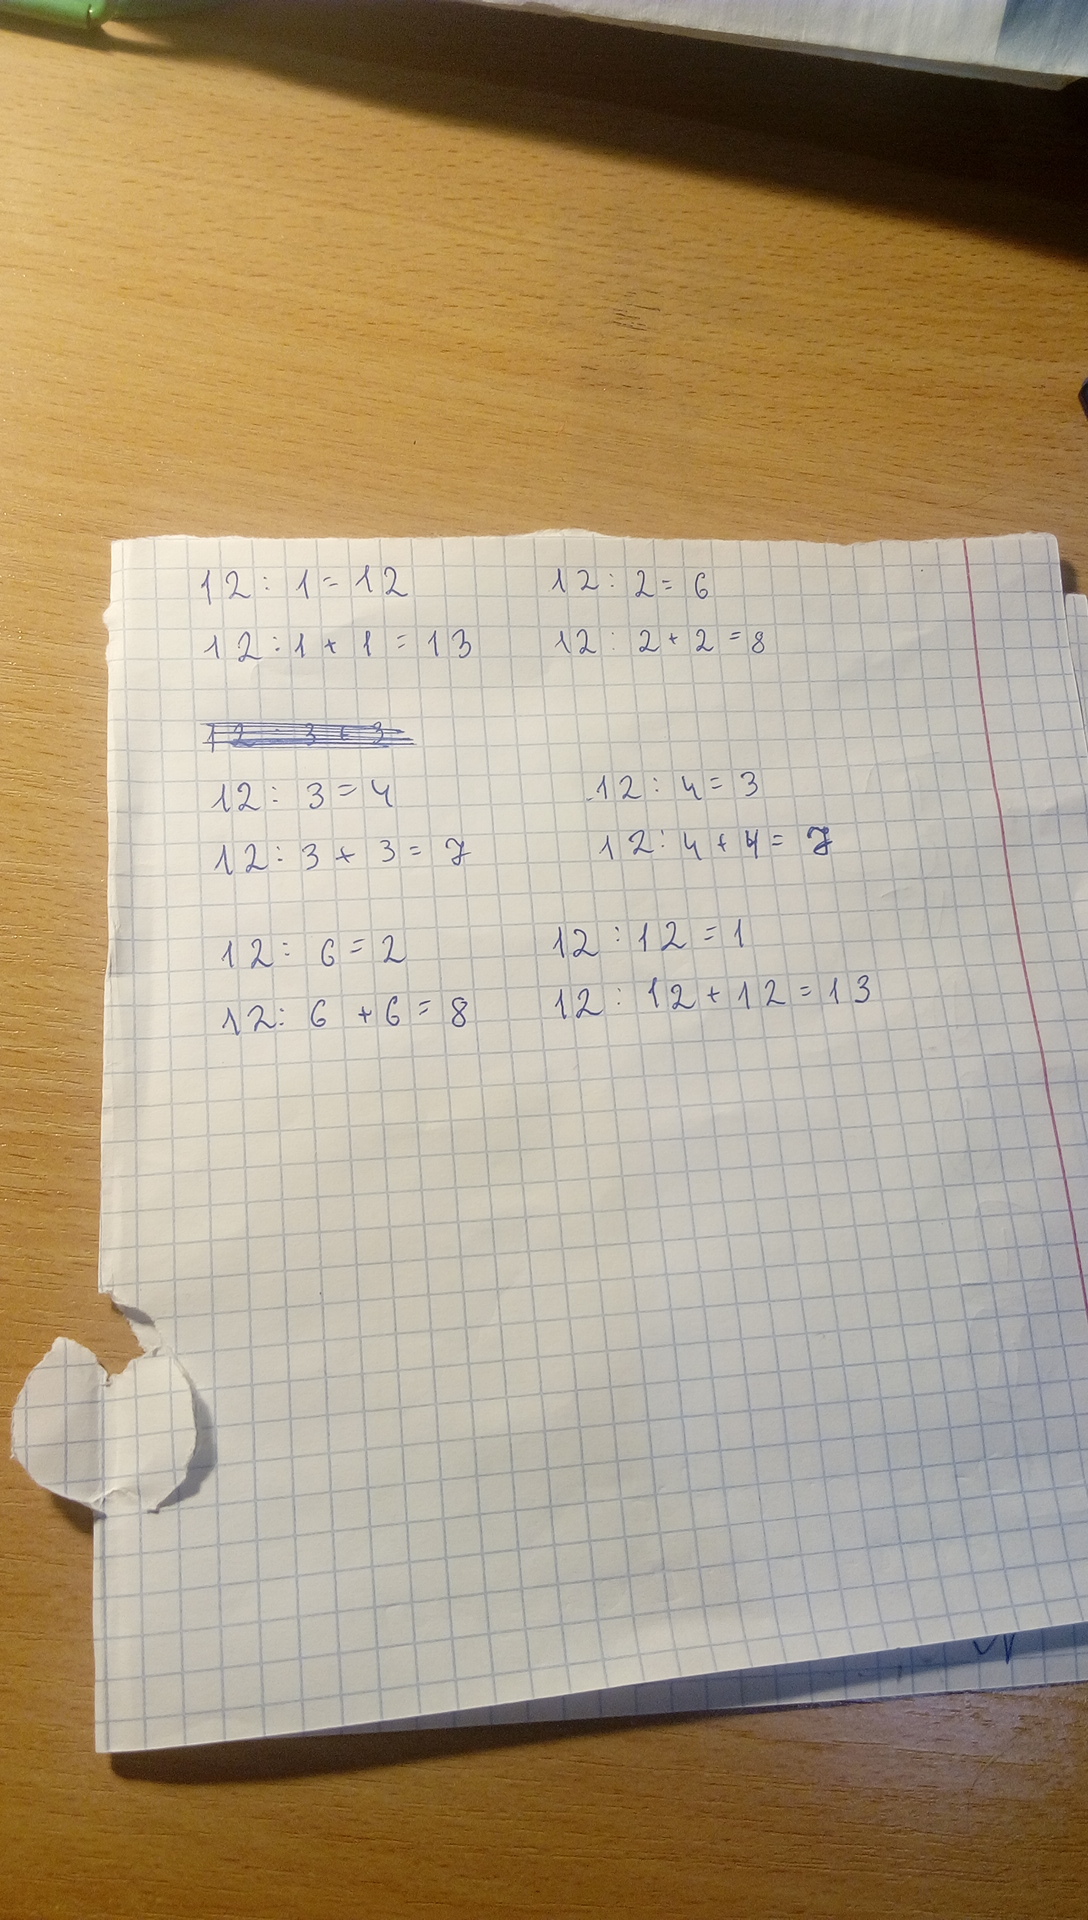 12 : 1 = 12 12 : 2 = 6
12 : 1 + 1 = 13 12 : 2 + 2 = 8
12 : 3 = 4 12 : 4 = 3
12 : 3 + 3 = 7 12 : 4 + 4 = 7
12 : 6 = 2 12 : 12 = 1
12 : 6 + 6 = 8 12 : 12 + 12 = 13